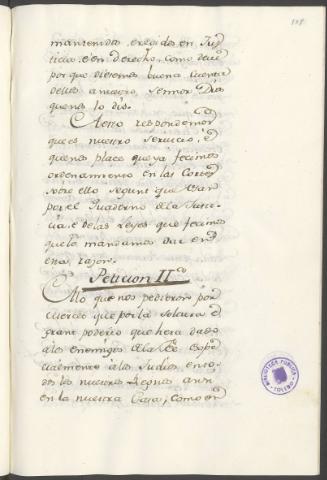 mantenidos, e regidos en Jus
ticia, e en derecho, como deve
por que diesemos buena cuenta
dellos a nuestro Sennor Dios
que nos lo dió.
A esto respondemos
que es nuestro servicio, é
que nos place que ya fecimos
ordenamiento en las Cortes
sobre ello segunt que está
por el Quaderno de la Justi
cia, e de las Leyes que fecimos
que lo mandamos dar en
esta razon.
Peticion II.ª
A lo que nos pedieron por
merced que por la soltura, é
grant poderio que hera dado
á los enemigos de la Fé espe
cialmente á los Judios en to
dos los nuestros Regnos asi
en la nuestra Casa, como en
BIBLIOTECA PUBLICA
TOLEDO